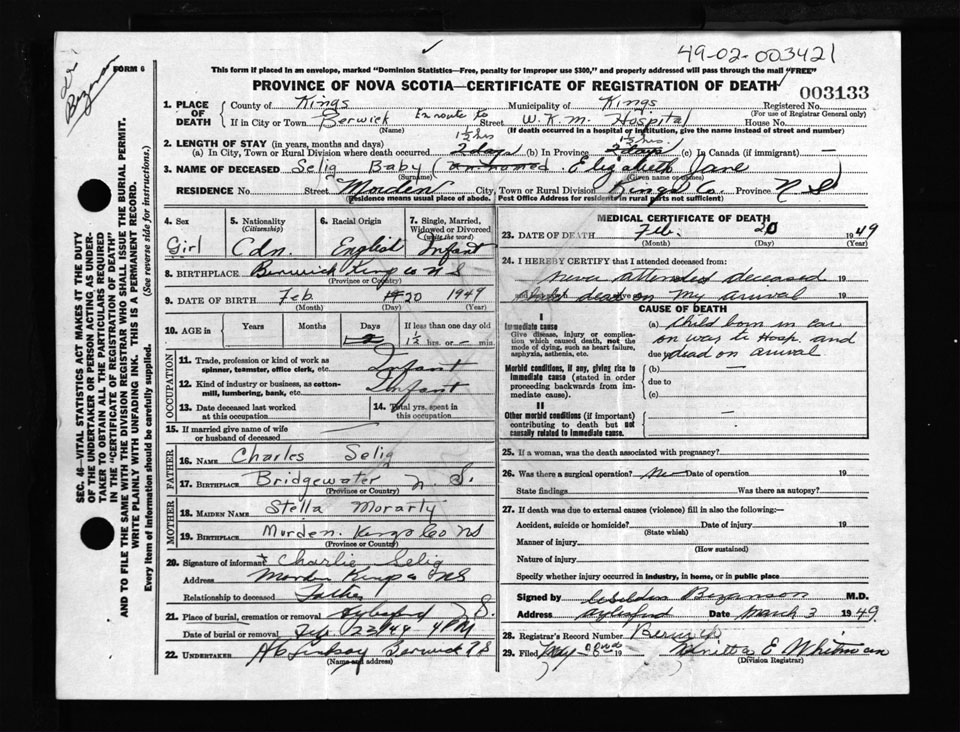 49-02-003421
Dr Bezanson
FORM 6
This form if placed in an envelope, marked "Dominion Statistics—Free, penalty for improper use $300," and properly addressed will pass through the mail "FREE"
PROVINCE OF NOVA SCOTIA—CERTIFICATE OF REGISTRATION OF DEATH
003133
1. PLACE OF DEATH
County of Kings Municipality of Kings Registered No.
(For use of Registrar General only)
If in City or Town Berwick Enroute to Street W.K.M. Hospital House No.
(Name) (If death occurred in a hospital or institution, give the name instead of street and number)
2. LENGTH OF STAY (in years, months and days)
1½ hrs 1½ hrs.
(a) In City, Town or Rural Division where death occurred 2 days (b) In Province 2 days (c) In Canada (if immigrant) —
3. NAME OF DECEASED Selig Baby (Unnamed Elizabeth Jane
(Surname) (Given name or names)
RESIDENCE No. Street Morden City, Town or Rural Division Kings Co. Province N S
(Residence means usual place of abode. Post Office Address for residents in rural parts not sufficient)
4. Sex
Girl
5. Nationality
(Citizenship)
Cdn.
6. Racial Origin
English
7. Single, Married, Widowed or Divorced
(write the word)
Infant
8. BIRTHPLACE Berwick Kings Co N S
(Province or Country)
9. DATE OF BIRTH Feb 20 1949
(Month) (Day) (Year)
10. AGE in
Years Months Days If less than one day old
1½ hrs. or — min.
OCCUPATION
11. Trade, profession or kind of work as spinner, teamster, office clerk, etc. Infant
12. Kind of industry or business, as cotton-mill, lumbering, bank, etc. Infant
13. Date deceased last worked at this occupation
14. Total yrs. spent in this occupation
15. If married give name of wife or husband of deceased
FATHER
16. NAME Charles Selig
17. BIRTHPLACE Bridgewater N. S.
(Province or Country)
MOTHER
18. MAIDEN NAME Stella Morarty
19. BIRTHPLACE Morden. Kings Co NS
(Province or Country)
20. Signature of informant x Charlie Selig
Address Morden Kings Co NS
Relationship to deceased Father
21. Place of burial, cremation or removal Aylesford N S.
Date of burial or removal Feb 22/49 - 4 PM
22. UNDERTAKER Lindsay Berwick N S
(Name and address)
MEDICAL CERTIFICATE OF DEATH
23. DATE OF DEATH Feb. 20 1949
(Month) (Day) (Year)
24. I HEREBY CERTIFY that I attended deceased from:
never attended deceased 19
dead on my arrival 19
CAUSE OF DEATH
I
Immediate cause
Give disease, injury or complication which caused death, not the mode of dying, such as heart failure, asphyxia, asthenia, etc.
(a) Child born in car
on way to Hosp. and
due to dead on arrival
Morbid conditions, if any, giving rise to immediate cause (stated in order proceeding backwards from immediate cause).
(b) —
due to
(c)
II
Other morbid conditions (if important) contributing to death but not causally related to immediate cause.
—
25. If a woman, was the death associated with pregnancy?
26. Was there a surgical operation? no Date of operation 19
State findings Was there an autopsy?
27. If death was due to external causes (violence) fill in also the following:—
Accident, suicide or homicide? Date of injury 19
(State which)
Manner of injury
(How sustained)
Nature of injury
Specify whether injury occurred in industry, in home, or in public place
Signed by Bezanson M.D.
Address Aylesford Date March 3 1949
28. Registrar's Record Number Berwick
29. Filed 19 E. Whitman
(Division Registrar)
SEC. 46—VITAL STATISTICS ACT MAKES IT THE DUTY
OF THE UNDERTAKER OR PERSON ACTING AS UNDER-
TAKER TO OBTAIN ALL THE PARTICULARS REQUIRED
IN THE "CERTIFICATE OF REGISTRATION OF DEATH"
AND TO FILE THE SAME WITH THE DIVISION REGISTRAR WHO SHALL ISSUE THE BURIAL PERMIT.
WRITE PLAINLY WITH UNFADING INK. THIS IS A PERMANENT RECORD.
Every item of Information should be carefully supplied. (See reverse side for instructions.)